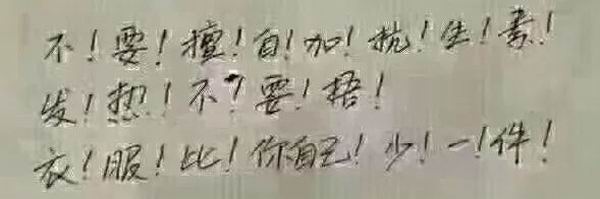 不！要！擅！自！加！抗！生！素！
发！热！不！要！捂！
衣！服！比！你自己！少！一！件！